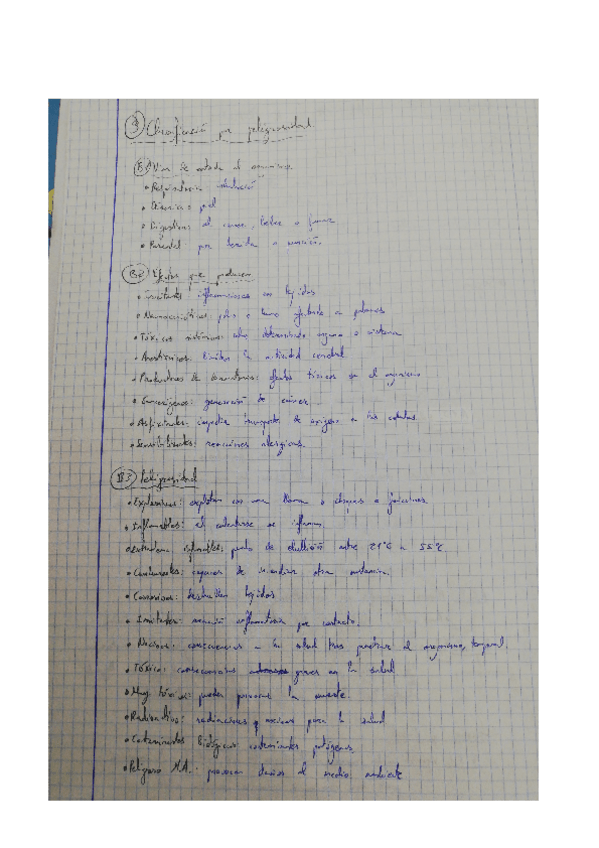 B) Clasificación por peligrosidad
B1) Vías de entrada al organismo
• Respiratoria: inhalación
• Dérmica: piel
• Digestiva: al comer, beber o fumar
• Parental: por herida o punción.
B2) Efectos que producen
• Irritantes: inflamaciones en tejidos
• Neumoconióticos: polvo o humo afectando a pulmones
• Tóxicos sistémicos: sobre determinado órgano o sistema
• Anestésicos: limitan la actividad cerebral
• Productores de dermatosis: efectos físicos en el organismo
• Cancerígenos: generación de cáncer.
• Asfixiantes: impedir transporte de oxígeno a las células.
• Sensibilizantes: reacciones alérgicas.
B3) Peligrosidad
• Explosivos: explotan con una llama o choques o fricciones.
• Inflamables: al calentarse se inflaman.
inflamables: punto de ebullición entre 21°C a 55°C
• Comburentes: capaces de incendiar otra sustancia.
• Corrosivos: destruyen tejidos
• Irritantes: reacción inflamatoria por contacto.
• Nocivos: consecuencias a la salud tras penetrar al organismo, temporal.
• Tóxicos: consecuencias graves en la salud
• Muy tóxicos: pueden provocar la muerte.
• Radioactivos: radiaciones nocivas para la salud
• Contaminantes Biológicos: contaminantes patógenos.
• Peligroso M.A.: provocan daños al medio ambiente